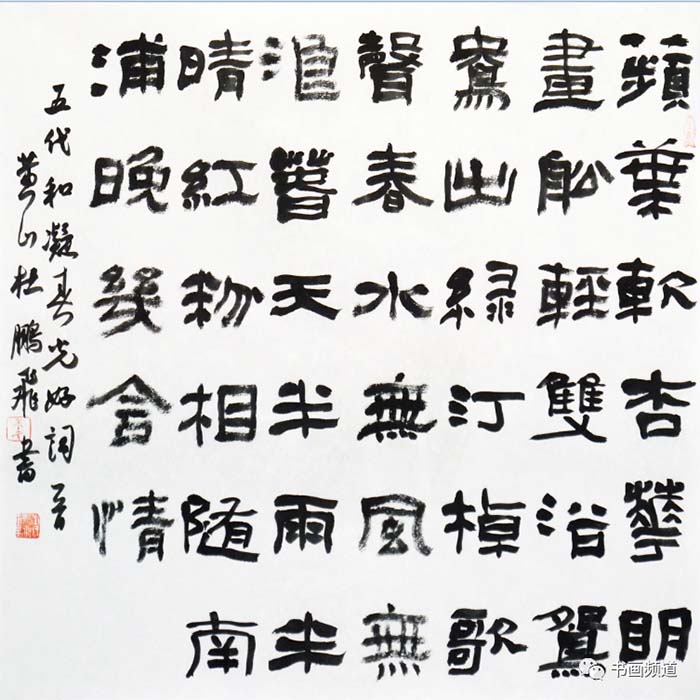 蘋葉軟杏華明
畫船輕雙浴鴛
鴦出綠汀棹歌
聲春水無風無
浪萅天半雨半
晴紅粉相隨南
浦晚幾含情
五代和凝春光好詞一首
黄山杜鵬飛書
书画频道